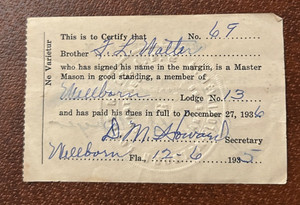 Ne Varietur
This is to Certify that No. 69
Brother F. L. Walters
who has signed his name in the margin, is a Master
Mason in good standing, a member of
Wellborn Lodge No. 13
and has paid his dues in full to December 27, 1936
D. M. Howard Secretary
Wellborn Fla., 12-6 1935